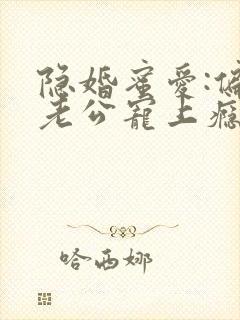 隐婚蜜爱:偏
老公宠上瘾
哈西娜